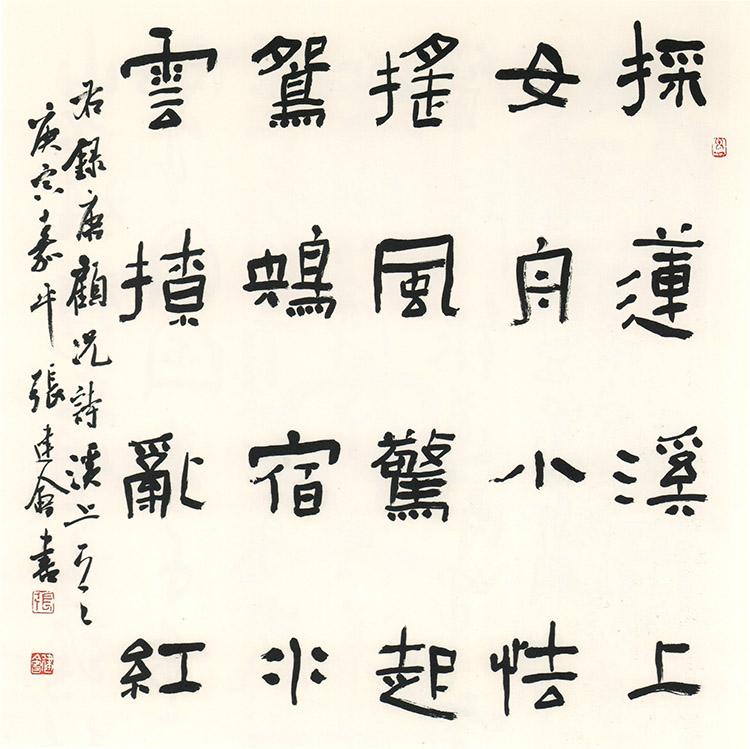 採蓮溪上
女舟小怯
搖風驚起
鴛鴦宿水
雲撩亂紅
右錄唐顧況詩溪上
庚寅嘉平張建會書
張